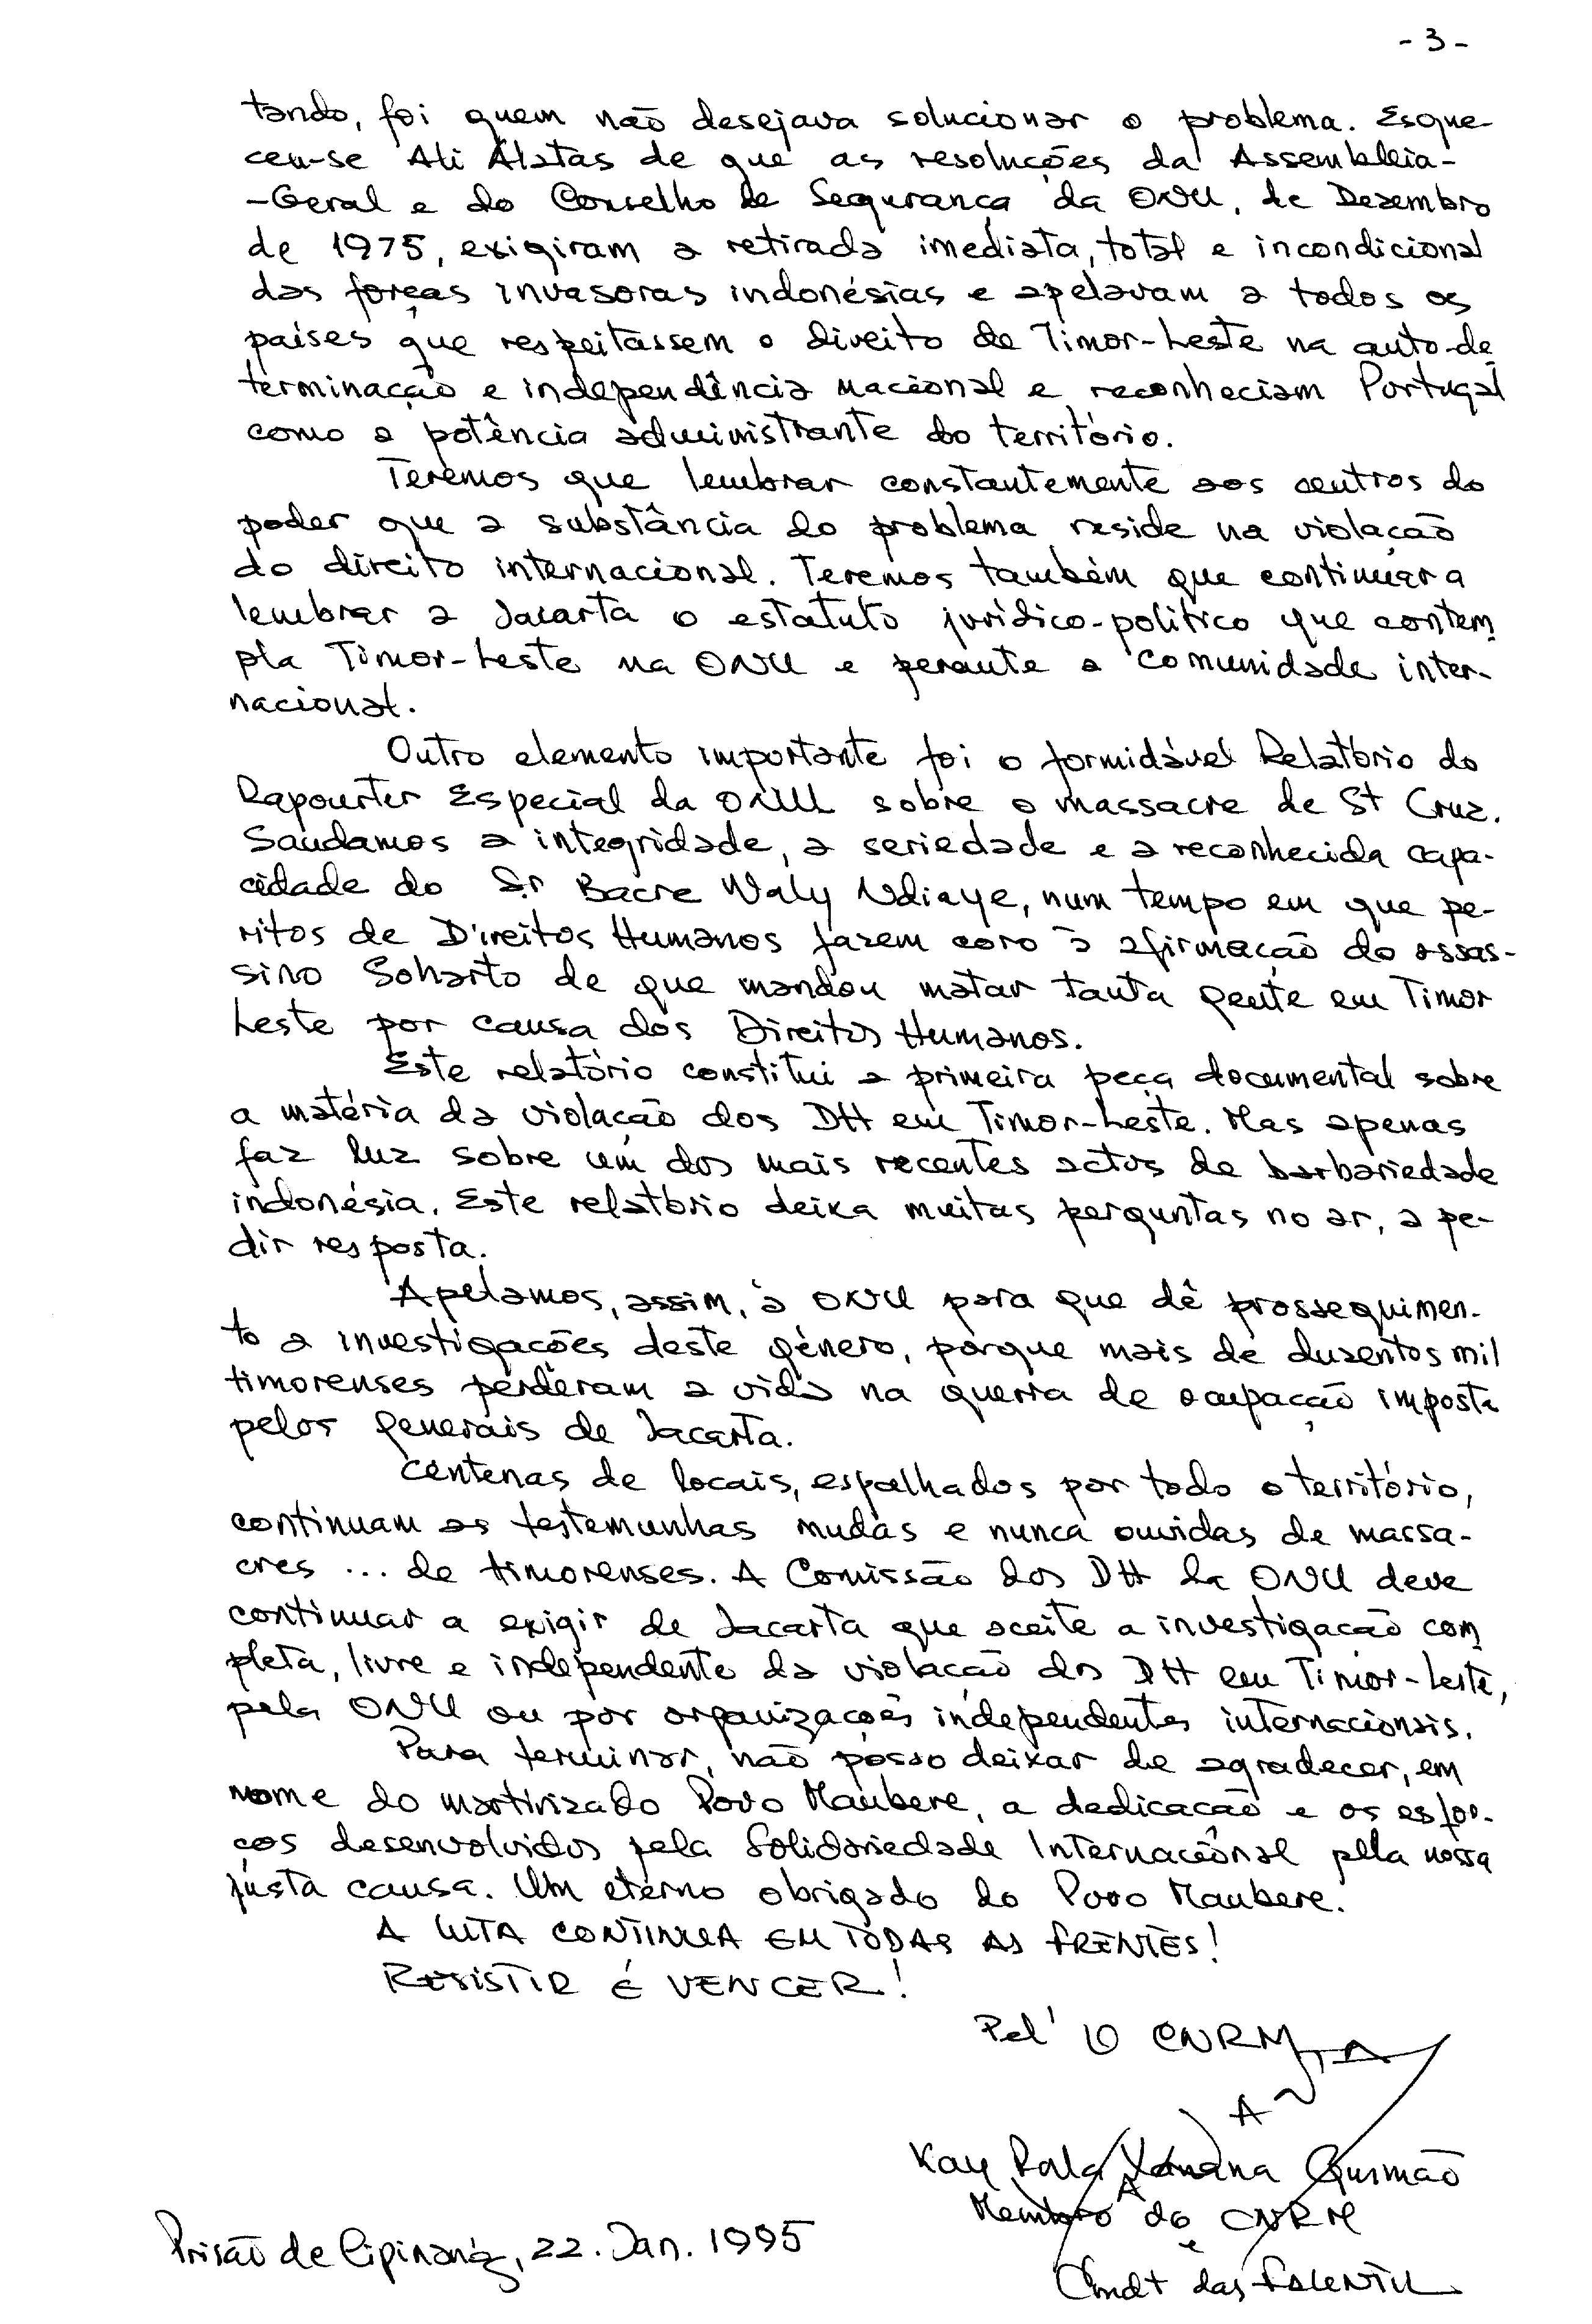 - 3 -
tando, foi quem não desejava solucionar o problema. Esque-
ceu-se Ali Alatas de que as resoluções da Assembleia-
-Geral e do Conselho de Segurança da ONU, de Dezembro
de 1975, exigiram a retirada imediata, total e incondicional
das forças invasoras indonésias e apelavam a todos os
países que respeitassem o direito de Timor-Leste na auto-de
terminação e independência nacional e reconheciam Portugal
como a potência administrante do território.
Teremos que lembrar constantemente aos centros do
poder que a substância do problema reside na violação
do direito internacional. Teremos também que continuar a
lembrar a Jacarta o estatuto jurídico-político que contem
pla Timor-Leste na ONU e perante a comunidade inter-
nacional.
Outro elemento importante foi o formidável Relatório do
Rapourter Especial da ONU sobre o massacre de St Cruz.
Saudamos a integridade, a seriedade e a reconhecida capa-
cidade do Sr Bacre Waly Ndiaye, num tempo em que pe-
ritos de Direitos Humanos fazem coro à afirmação do assas-
sino Soharto de que mandou matar tanta gente em Timor
Leste por causa dos Direitos Humanos.
Este relatório constitui a primeira peça documental sobre
a matéria da violação dos DH em Timor-Leste. Mas apenas
faz luz sobre um dos mais recentes actos de barbariedade
indonésia. Este relatório deixa muitas perguntas no ar, a pe-
dir resposta.
Apelamos, assim, à ONU para que dê prosseguimen-
to a investigações deste género, porque mais de duzentos mil
timorenses perderam a vida na guerra de ocupação imposta
pelos generais de Jacarta.
Centenas de locais, espalhados por todo o território,
continuam as testemunhas mudas e nunca ouvidas de massa-
cres ... de timorenses. A Comissão dos DH da ONU deve
continuar a exigir de Jacarta que aceite a investigação com
pleta, livre e independente da violação dos DH em Timor-Leste,
pela ONU ou por organizações independentes internacionais.
Para terminar, não posso deixar de agradecer, em
nome do martirizado Povo Maubere, a dedicação e os esfor-
ços desenvolvidos pela Solidariedade Internacional pela nossa
justa causa. Um eterno obrigado do Povo Maubere.
A LUTA CONTINUA EM TODAS AS FRENTES!
RESISTIR É VENCER!
Pel' O CNRM
Kay Rala Xanana Gusmão
Membro do CNRM
e
Cmdt das FALINTIL
Prisão de Cipinang, 22. Jan. 1995